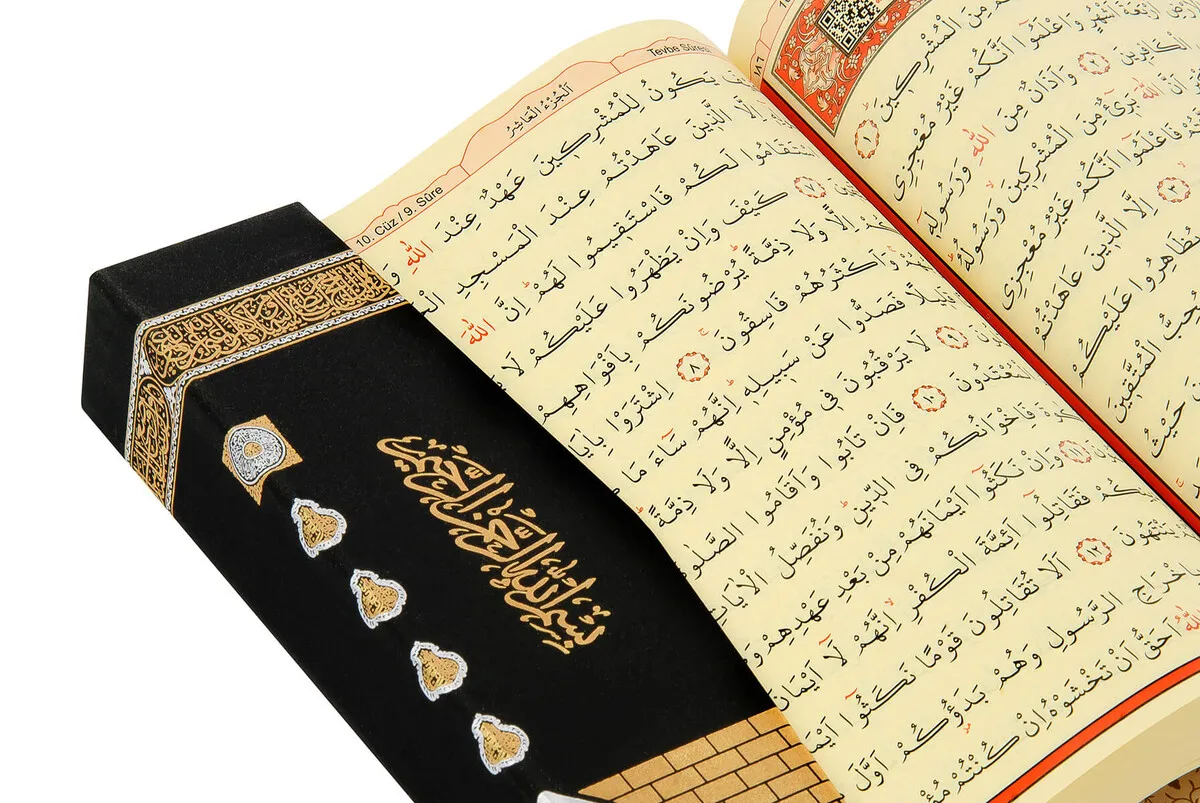 مِنَ الْمُشْرِكِينَ ١
اَرْبَعَةَ اَشْهُرٍ وَاعْلَمُٓوا اَنَّكُمْ غَيْرُ مُعْجِزِى
الْكَافِرِينَ ٢ وَاَذَانٌ مِنَ اللّٰهِ وَرَسُولِهٖ
اَنَّ اللّٰهَ بَرِىٓءٌ مِنَ الْمُشْرِكِينَ وَرَسُولُهُ
فَاعْلَمُٓوا اَنَّكُمْ غَيْرُ مُعْجِزِى
٣ اِلَّا الَّذِينَ عَاهَدْتُمْ
يُظَاهِرُوا عَلَيْكُمْ
الْمُتَّقِينَ
حَيْثُ
Tevbe Sûresi
اَلْجُزْءُ الْعَاشِرُ
10. Cüz / 9. Sûre
يَكُونُ لِلْمُشْرِكِينَ عَهْدٌ عِنْدَ اللّٰهِ
اِلَّا الَّذِينَ عَاهَدْتُمْ عِنْدَ الْمَسْجِدِ
اسْتَقَامُوا لَكُمْ فَاسْتَقِيمُوا لَهُمْ اِنَّ اللّٰهَ
٧ كَيْفَ وَاِنْ يَظْهَرُوا عَلَيْكُمْ لَا
اِلًّا وَلَا ذِمَّةً يُرْضُونَكُمْ بِاَفْوَاهِهِمْ
وَاَكْثَرُهُمْ فَاسِقُونَ ٨ اِشْتَرَوْا بِاٰيَاتِ
قَلِيلًا فَصَدُّوا عَنْ سَبِيلِهٖ اِنَّهُمْ سَٓاءَ مَا
لَا يَرْقُبُونَ فِى مُؤْمِنٍ اِلًّا وَلَا ذِمَّةً
الْمُعْتَدُونَ ١٠ فَاِنْ تَابُوا وَاَقَامُوا الصَّلٰوةَ
فَاِخْوَانُكُمْ فِى الدِّينِ وَنُفَصِّلُ الْاٰيَاتِ
١١ وَاِنْ نَكَثُٓوا اَيْمَانَهُمْ مِنْ بَعْدِ عَهْدِهِمْ
فَقَاتِلُٓوا اَئِمَّةَ الْكُفْرِ اِنَّهُمْ لَٓا اَيْمَانَ
يَنْتَهُونَ ١٢ اَلَا تُقَاتِلُونَ قَوْمًا نَكَثُٓوا
بِاِخْرَاجِ الرَّسُولِ وَهُمْ بَدَؤُكُمْ اَوَّلَ
اَحَقُّ اَنْ تَخْشَوْهُ اِنْ كُنْتُمْ
بسم الله الرحمن الرحيم